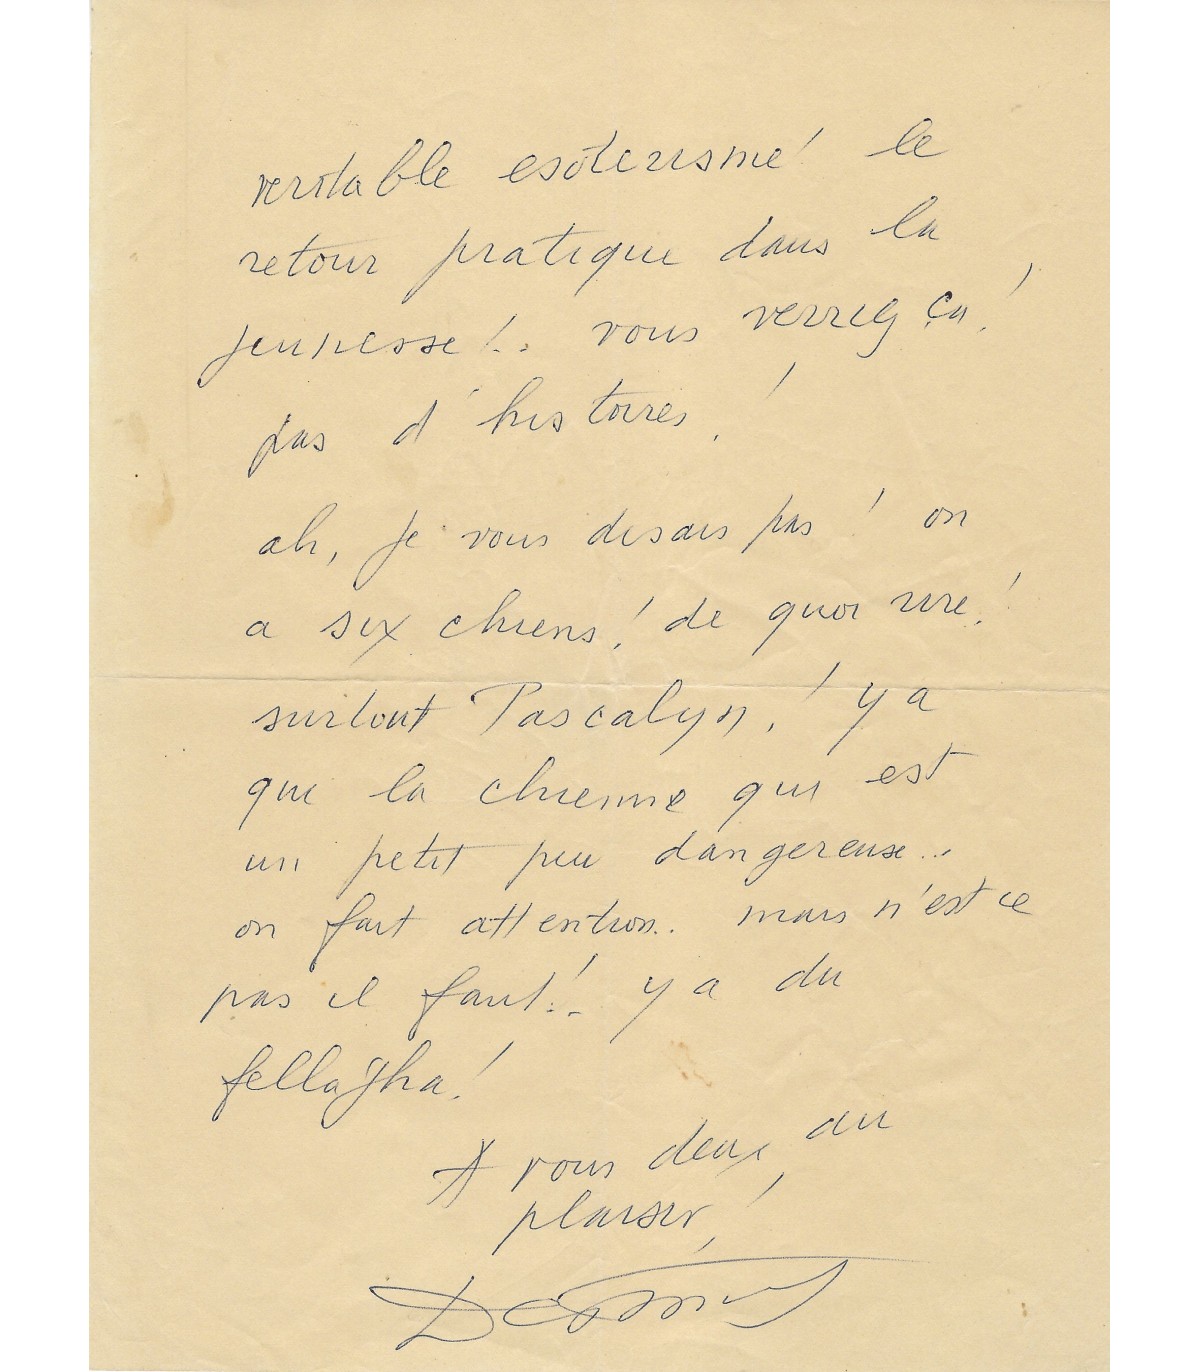 veritable esoterisme! le
retour pratique dans la
jeunesse!.. vous verrez ça!
pas d'histoires!
ah, je vous disais pas! on
a six chiens! de quoi rire!
surtout Pascalyn! y a
que la chienne qui est
un petit peu dangereuse...
on fait attention.. mais n'est ce
pas il faut!.. y a du
fellagha!
A vous deux, au
plaisir!